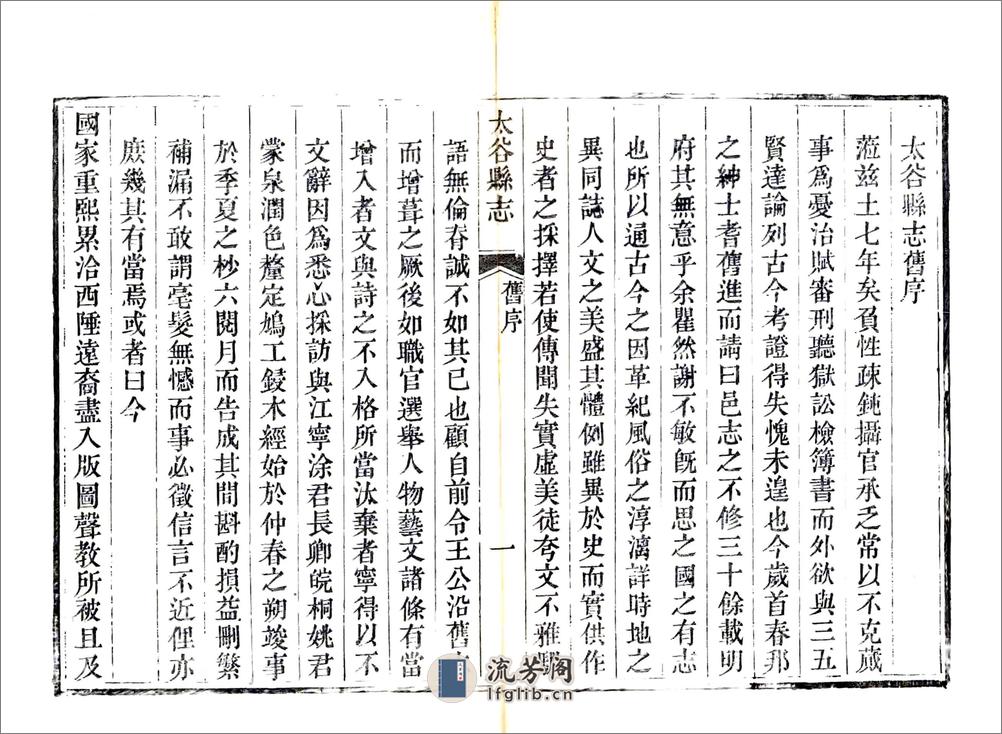 太谷縣志舊序
蒞兹土七年矣負性疎鈍攝官承乏常以不克蕆
事爲憂治賦審刑聽獄訟檢簿書而外欲與三五
賢達論列古今考證得失愧未遑也今歲首春邢
之紳士耆舊進而請曰邑志之不修三十餘載明
府其無意乎余瞿然謝不敏旣而思之國之有志
也所以通古今之因革紀風俗之淳漓詳時地之
異同誌人文之美盛其體例雖異於史而實供作
史者之採擇若使傳聞失實虛美徒夸文不雅馴
太谷縣志
舊序
一
語無倫脊誠不如其已也顧自前令王公沿舊
而增葺之厥後如職官選舉人物藝文諸條有當
增入者文與詩之不入格所當汰棄者寧得以不
文辭因爲悉心採訪與江寧涂君長卿皖桐姚君
蒙泉潤色釐定鳩工鋟木經始於仲春之朔竣事
於季夏之杪六閱月而告成其間斟酌損益刪繁
補漏不敢謂毫髮無憾而事必徵信言不近俚亦
庶幾其有當焉或者曰今
國家重熙累洽西陲遠裔盡入版圖聲教所被且及
流芳阁
lfglib.cn